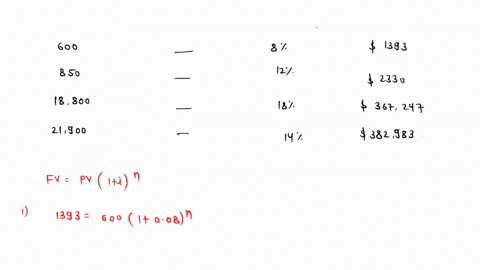 600 — 8% $ 1393
850 — 12% $ 2330
18,800 — 18% $ 367,247
21,900 — 14% $382,983
FV = PV · (1+i)^n
1) 1393 = 600 (1 + 0.08)^n